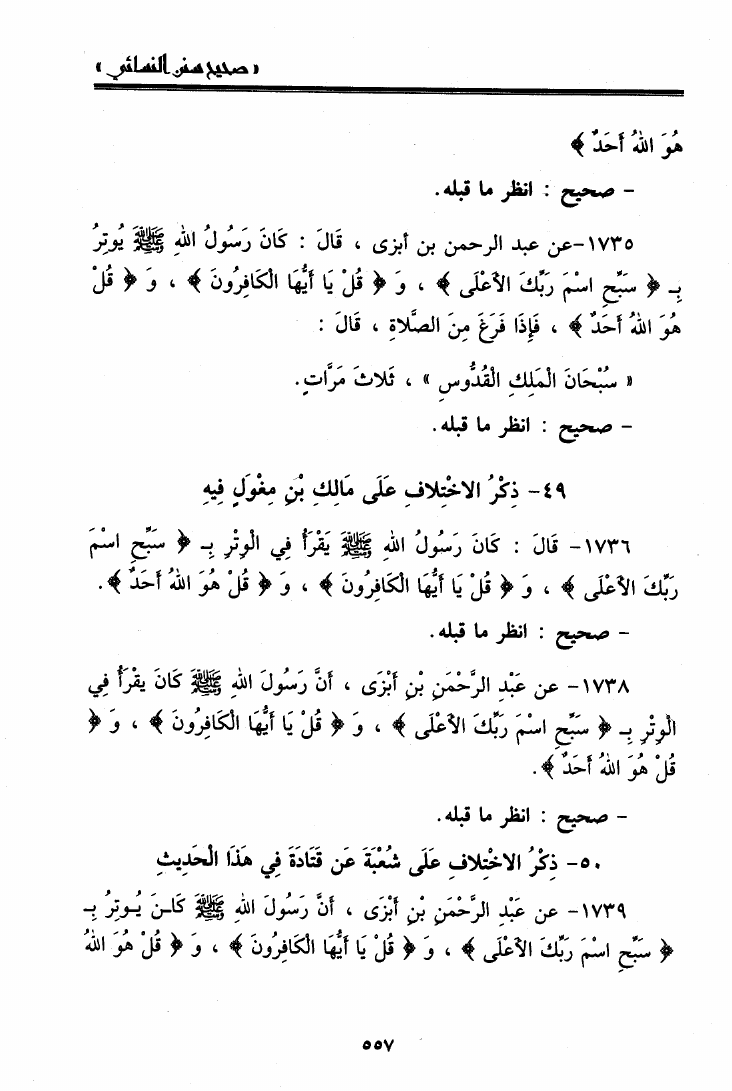 « صحيح سنن النسائي »
هُوَ اللهُ أَحَدٌ ﴾
- صحيح : انظر ما قبله.
١٧٣٥-عن عبد الرحمن بن أبزى ، قَالَ : كَانَ رَسُولُ اللهِ ﷺ يُوتِرُ
بِـ ﴿ سَبِّحِ اسْمَ رَبِّكَ الأَعْلَى ﴾ ، وَ ﴿ قُلْ يَا أَيُّهَا الْكَافِرُونَ ﴾ ، وَ ﴿ قُلْ
هُوَ اللهُ أَحَدٌ ﴾ ، فَإِذَا فَرَغَ مِنَ الصَّلاةِ ، قَالَ :
« سُبْحَانَ الْمَلِكِ الْقُدُّوسِ » ، ثَلاثَ مَرَّاتٍ.
- صحيح : انظر ما قبله.
٤٩- ذِكْرُ الاخْتِلافِ عَلَى مَالِكِ بْنِ مِغْوَلٍ فِيهِ
١٧٣٦- قَالَ : كَانَ رَسُولُ اللهِ ﷺ يَقْرَأُ فِي الْوِتْرِ بِـ ﴿ سَبِّحِ اسْمَ
رَبِّكَ الأَعْلَى ﴾ ، وَ ﴿ قُلْ يَا أَيُّهَا الْكَافِرُونَ ﴾ ، وَ ﴿ قُلْ هُوَ اللهُ أَحَدٌ ﴾.
- صحيح : انظر ما قبله.
١٧٣٨- عن عَبْدِ الرَّحْمَنِ بْنِ أَبْزَى ، أَنَّ رَسُولَ اللهِ ﷺ كَانَ يقْرَأُ فِي
الْوِتْرِ بِـ ﴿ سَبِّحِ اسْمَ رَبِّكَ الأَعْلَى ﴾ ، وَ ﴿ قُلْ يَا أَيُّهَا الْكَافِرُونَ ﴾ ، وَ ﴿
قُلْ هُوَ اللهُ أَحَدٌ ﴾.
- صحيح : انظر ما قبله.
٥٠- ذِكْرُ الاخْتِلافِ عَلَى شُعْبَةَ عَن قَتَادَةَ فِي هَذَا الْحَدِيثِ
١٧٣٩- عن عَبْدِ الرَّحْمَنِ بْنِ أَبْزَى ، أَنَّ رَسُولَ اللهِ ﷺ كَانَ يُـوتِرُ بِـ
﴿ سَبِّحِ اسْمَ رَبِّكَ الأَعْلَى ﴾ ، وَ ﴿ قُلْ يَا أَيُّهَا الْكَافِرُونَ ﴾ ، وَ ﴿ قُلْ هُوَ اللهُ
٥٥٧